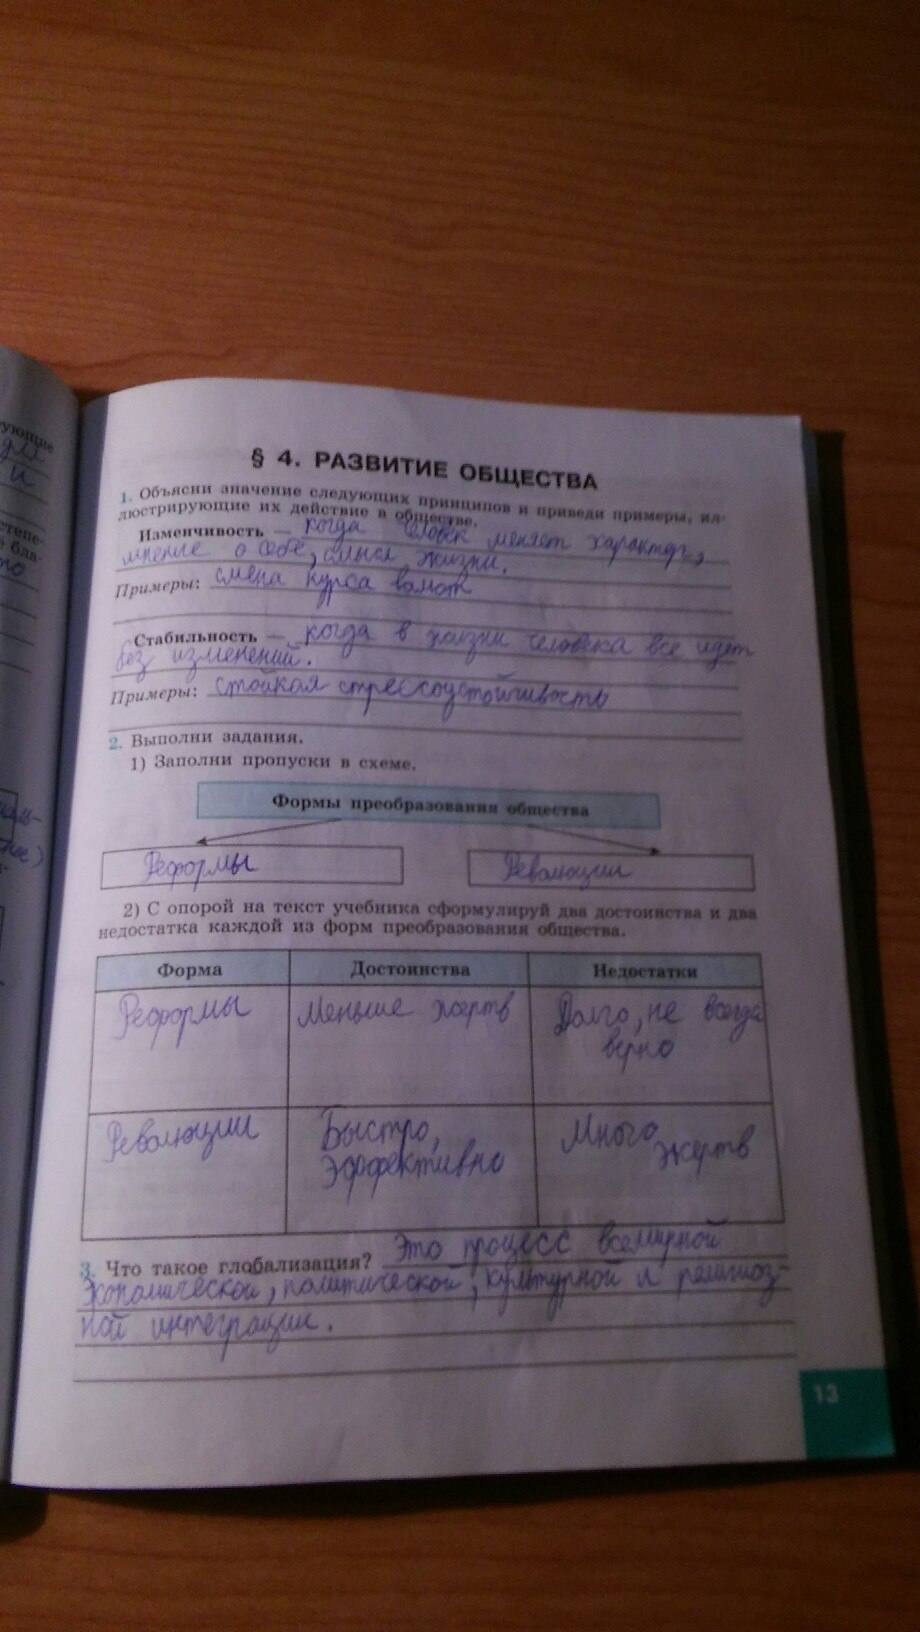 ующие
для
и
степе-
бла-
§ 4. РАЗВИТИЕ ОБЩЕСТВА
1. Объясни значение следующих принципов и приведи примеры, ил-
люстрирующие их действие в обществе.
Изменчивость — когда человек меняет характер,
мнение о себе, смысл жизни.
Примеры: смена курса валют
Стабильность — когда в жизни человека все идет
без изменений.
Примеры: стойкая стрессоустойчивость
2. Выполни задания.
1) Заполни пропуски в схеме.
Формы преобразования общества
Реформы Революции
2) С опорой на текст учебника сформулируй два достоинства и два
недостатка каждой из форм преобразования общества.
Форма Достоинства Недостатки
Реформы Меньше жертв Долго, не всегда
верно
Революции Быстро, Много
эффективно жертв
3. Что такое глобализация? Это процесс всемирной
экономической, политической, культурной и религиоз-
ной интеграции.
13